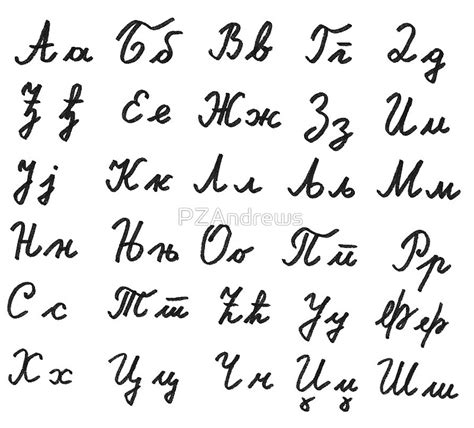 Аа Бб Вв Гг Дд
Ђђ Ее Жж Зз Ии
Јј Кк Лл Љљ Мм
PZAndrews
Нн Њњ Оо Пп Рр
Сс Тт Ћћ Уу Фф
Хх Цц Чч Џџ Шш